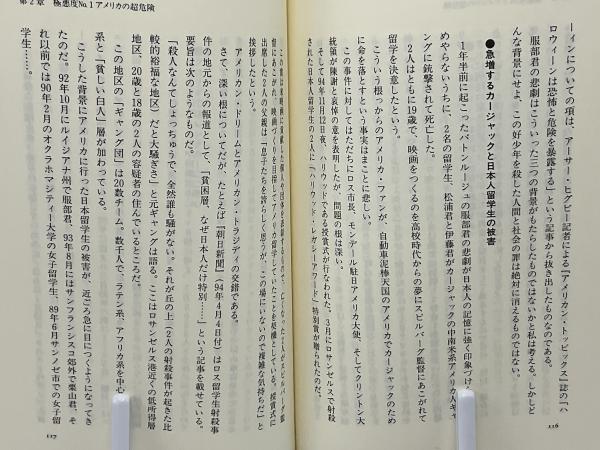 ーインについての項は、アーサー・ヒグビー記者による『アメリカン・トッピックス』誌の「ハ
ロウィーンは恐怖と危険を暴露する」という記事から抜き出したものなのである。
服部君の悲劇はこういった三つの背景がもたらしたものではないかと私は考える。しかしど
んな背景にせよ、この好少年を殺した人間と社会の罪は絶対に消えるものではない。
●急増するカージャックと日本人留学生の被害
1年半前に起こったバトンルージュの服部君の悲劇が日本人の記憶に強く印象づけ
めやらないうちに、2名の留学生、松浦君と伊藤君がカージャックの中南米系アメリカ人ギャ
ングに銃撃されて死亡した。
2人はともに19歳で、映画をつくるのを高校時代からの夢にスピルバーグ監督にあこがれて
留学を決意したという。
こういう根っからのアメリカ・ファンが、自動車泥棒天国のアメリカでカージャックのため
に命を落とすという事実はまことに悲しい。
この事件に対してはただちにロス市長、モンデール駐日アメリカ大使、そしてクリントン大
統領が陳謝と哀悼の意を表明したが、問題の根は深い。
そして94年11月12日夜、ハリウッドである授賞式が行なわれた。3月にロサンゼルスで射殺
された日本人留学生の2人に「ハリウッド・レガシーアワード」特別賞が贈られたのだ。
116
第2章 極悪度No.1アメリカの超危険
督にあこがれ、映画づくりを目指してアメリカ留学していたことを契機としている。授賞式に
出席した2人の父親は「息子たちを誇らしく思うが、この場にいないので複雑な気持ちだ」と
挨拶したという。
アメリカン・ドリームとアメリカン・トラジディの交錯である。
さて、深い根についてだが、たとえば『朝日新聞』（94年4月4日付）はロス留学生射殺事
件の地元からの報道として、「貧困層、なぜ日本人だけ特別……」という記事を載せている。
要旨は次のようなものだ。
「殺人なんてしょっちゅうで、全然誰も騒がない。それが丘の上（2人の射殺事件が起きた比
較的裕福な地区）だと大騒ぎさ」と元ギャングは語る。ここはロサンゼルス港近くの低所得層
地区、20歳と18歳の2人の容疑者の住んでいるところだ。
この地区の「ギャング団」は20数チーム。数千人で、ラテン系、アフリカ系を中心
系と「貧しい白人」層が加わっている。
こうした背景にアメリカに行った日本留学生の被害が、近ごろ急に目につくようになってき
たのだ。92年10月にルイジアナ州で服部君、93年8月にはサンフランシスコ郊外で栗山君、そ
れ以前では90年2月のオクラホマシティー大学の女子留学生、89年6月サンノゼ市での女子留
学生……。
117